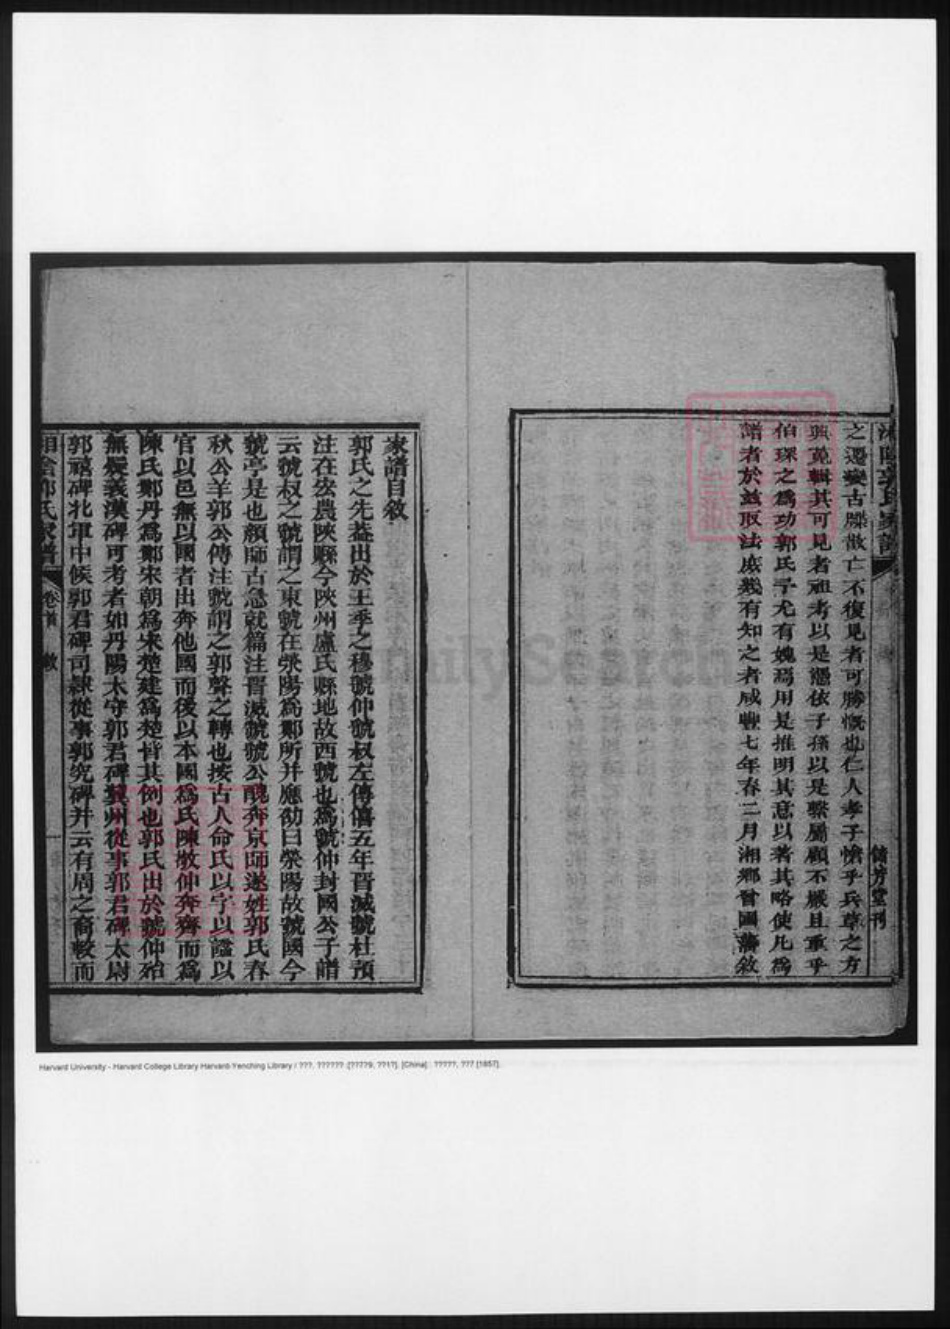 之遷變古牒散亡不復見者可勝慨也仁人孝子愴乎兵革之方
興蒐輯其可見者祖考以是憑依子孫以是繫屬顧不嚴且重乎
伯琛之爲功郭氏予尤有媿焉用是推明其意以著其略使凡爲
譜者於茲取法庶幾有知之者咸豐七年春二月湘鄉曾國藩敘
家譜自敘
郭氏之先蓋出於王季之穆虢仲虢叔左傳僖五年晋滅虢杜預
注在宏農陝縣今陝州盧氏縣地故西虢也爲虢仲封國公子譜
云虢叔之虢謂之東虢在滎陽爲鄭所并應劭曰滎陽故虢國今
虢亭是也顏師古急就篇注晋滅虢虢公醜奔京師遂姓郭氏春
秋公羊郭公傳注虢謂之郭聲之轉也按古人命氏以字以謚以
官以邑無以國者出奔他國而後以本國爲氏陳敬仲奔齊而爲
陳氏鄭丹爲鄭宋朝爲宋楚建爲楚皆其例也郭氏出於虢仲殆
無疑義漢碑可考者如丹陽太守郭君碑冀州從事郭君碑太尉
郭禧碑北軍中候郭君碑司隸從事郭究碑并云有周之裔較而
湘陰郭氏家譜 卷首 敘
儲芳堂刊
FamilySearch
Harvard University - Harvard College Library Harvard-Yenching Library / ???, ?????? :[????9, ??1?]. [China] : ?????, ??7 [1857].